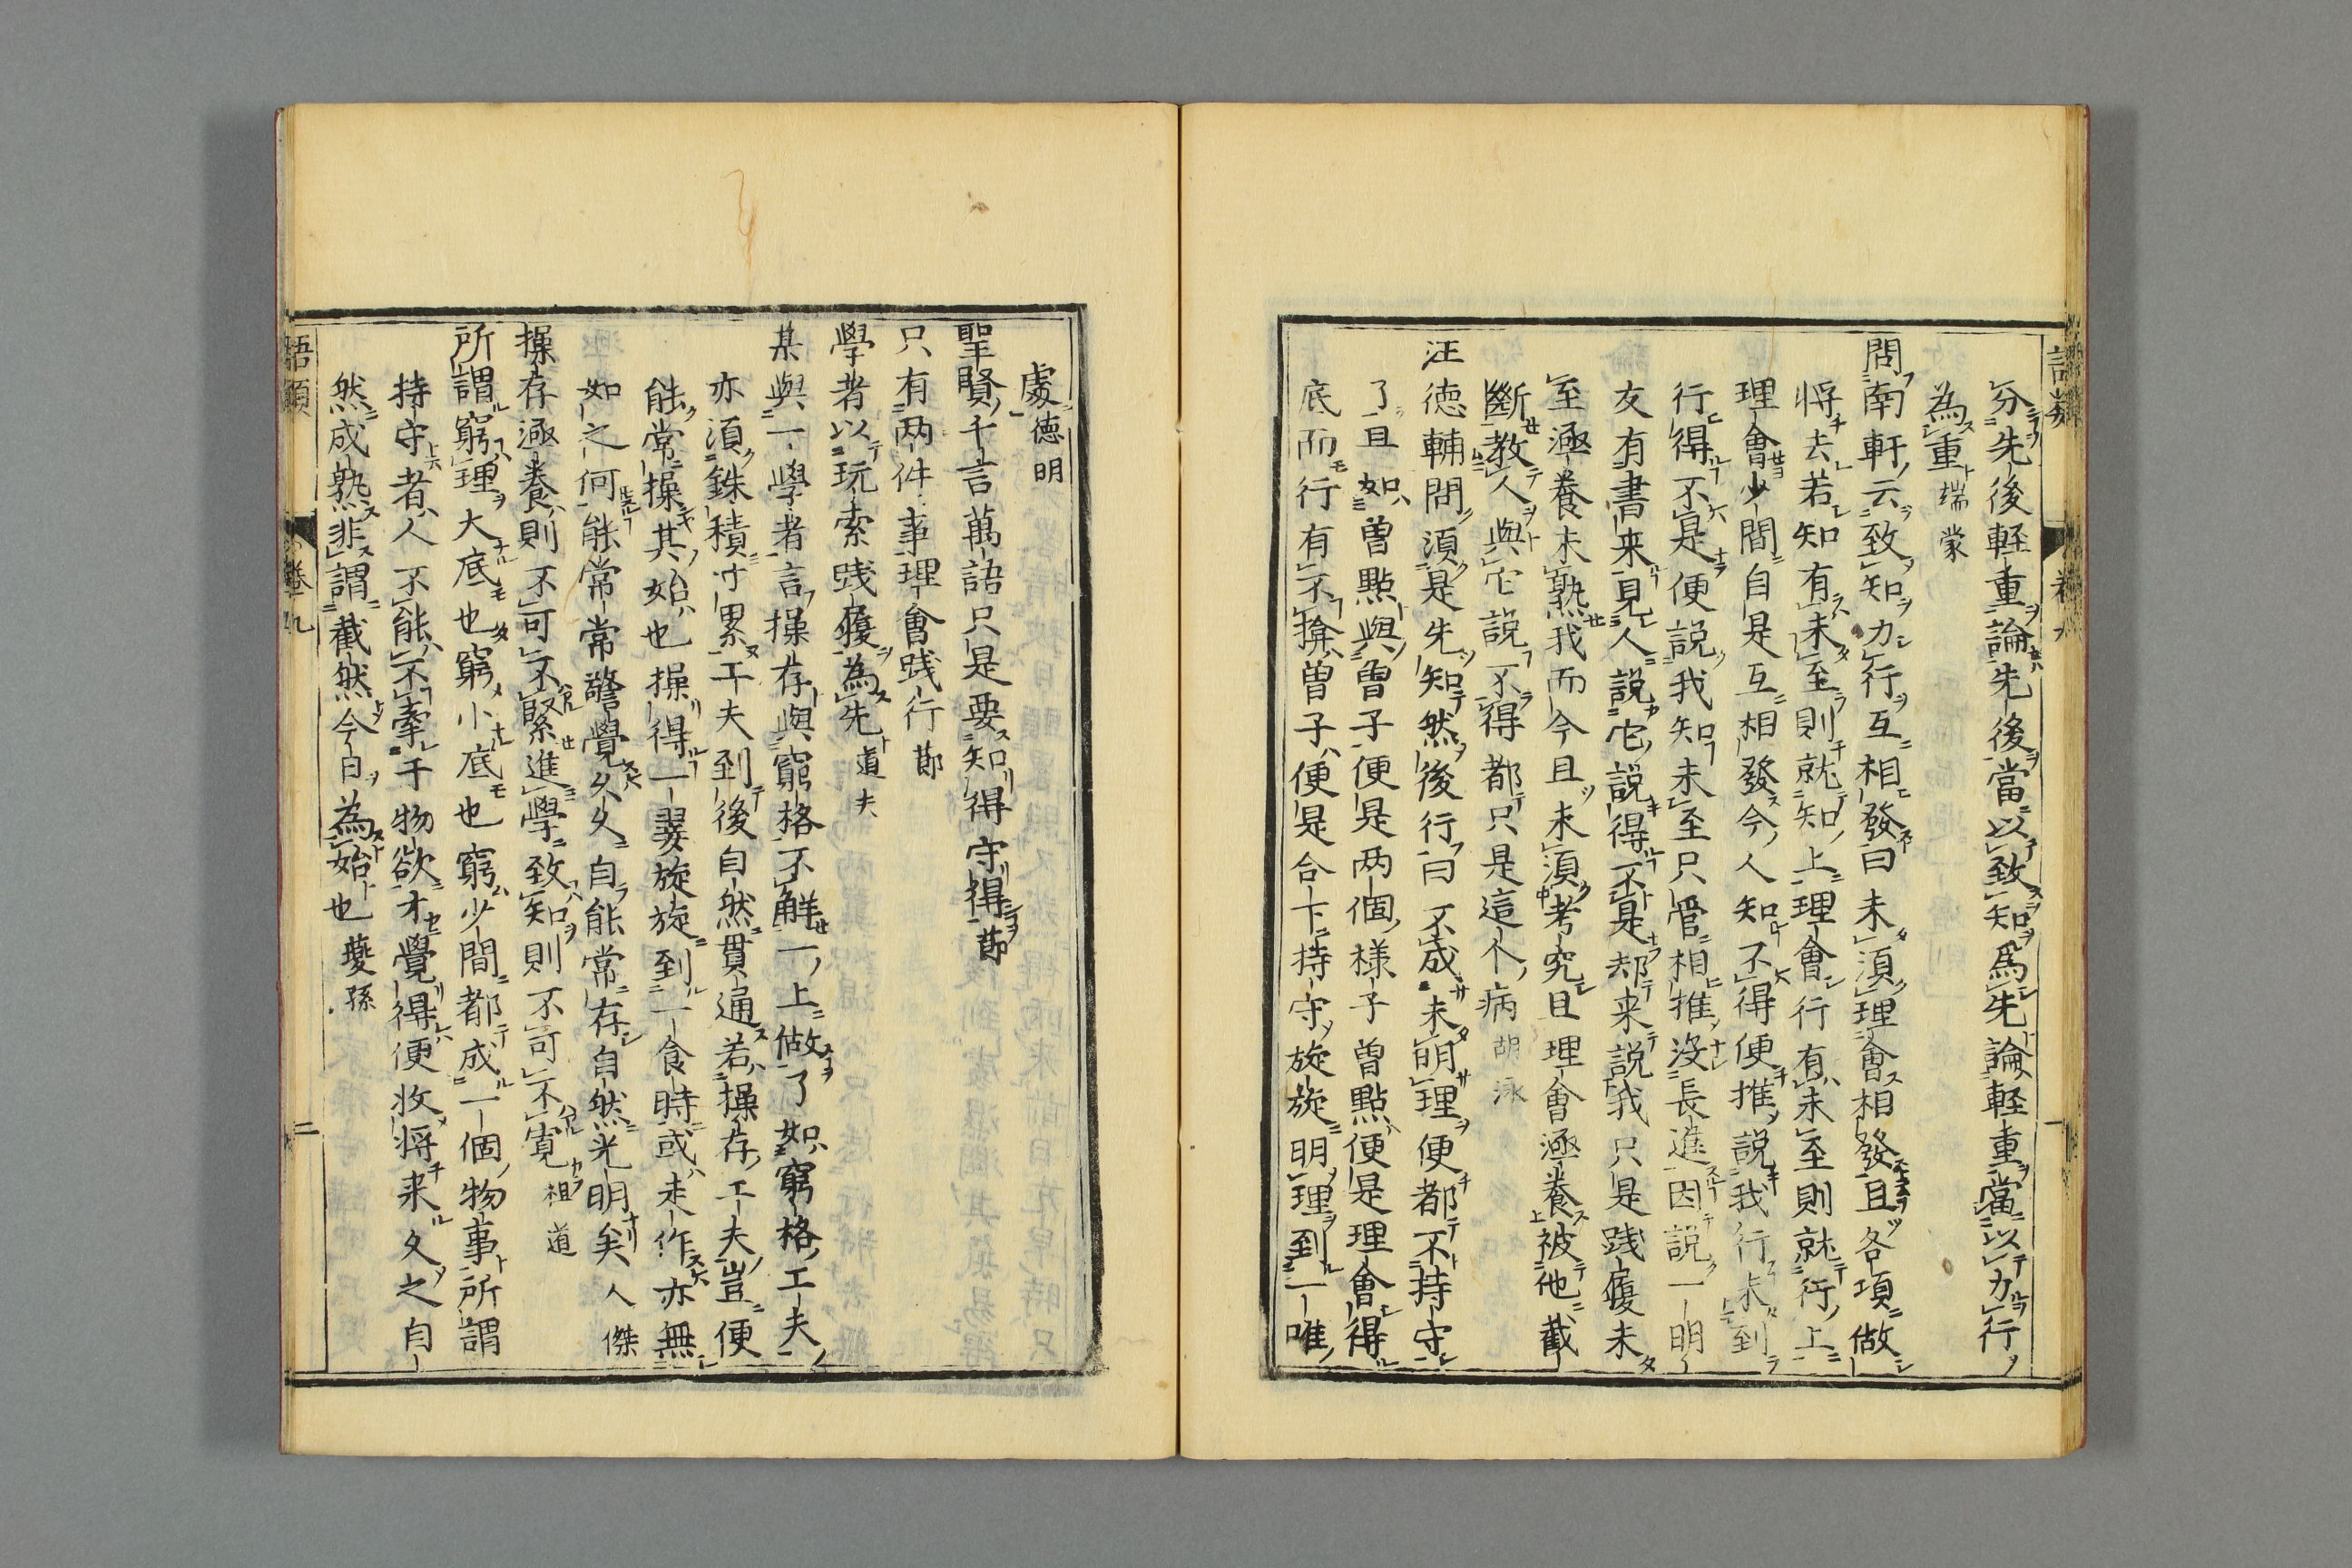 分先後輕重論先後當以致知爲先論輕重當以力行
為重端蒙
問南軒云致知力行互相發曰未須理會相發且各項做
将去若知有未至則就知上理會行有未至則就行上
理會少間自是互相發今人知不得便推說我行未到
行得不是便說我知未至只管相推没長進因說一明
友有書来見人說它說得不是却来說我只是践履未
至涵養未熟我而今且未須考究且理會涵養被他截
斷教人與它說不得都只是這个病胡泳
汪徳輔問須是先知然後行曰不成未明理便都不持守
了且如曽點與曽子便是两個様子曽點便是理會得
底而行有不揜曽子便是合下持守旋旋明理到一唯
處徳明
聖賢千言萬語只是要知得守得節
只有两件事理會践行節
學者以玩索践履為先道夫
某與一學者言操存與窮格不解一上做了如窮格工夫
亦須銖積寸累工夫到後自然貫通若操存工夫豈便
能常操其始也操得一霎旋旋到一食時或走作亦無
如之何能常常警覺久久自能常存自然光明矣人傑
操存涵養則不可不緊進學致知則不可不寛祖道
所謂窮理大底也窮小底也窮少間都成一個物事所謂
持守者人不能不牽于物欲才覺得便收将来久之自
然成熟非謂截然今日為始也夔孫
語類 卷九 二